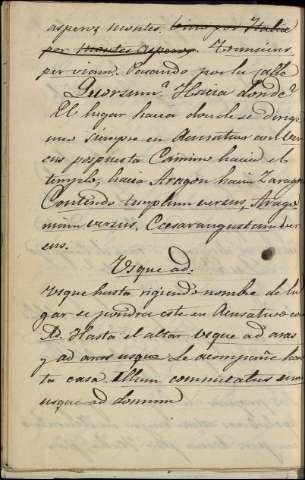 asperos montes. Eius per Italia
per montes asperos. Transimus
per viam. Pasando por la calle
Quorsum? Hacia donde?
El lugar hacia donde se dirige
uno siempre en Acusativo con ver
sus pospuesta Camino hacia el
templo, hacia Aragon hacia Zarago
Contendo templum versus, Arago
nium versus, Cæsaraugustam ver
sus.
Usque ad.
Usque hasta rigiendo nombre de lu
gar se pondra este en Acusativo con
Ad. Hasta el altar usque ad aras
y ad aras usque Le acompañé has
ta casa. Illum comitatus sum
usque ad domum